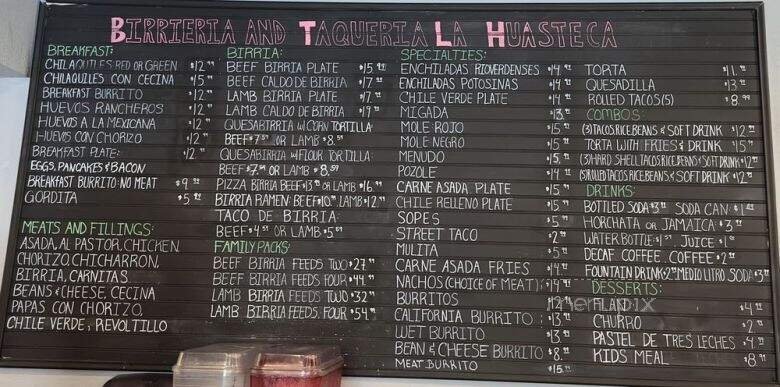 BIRRIERIA AND TAQUERIA LA HUASTECA
BREAKFAST:
CHILAQUILES RED OR GREEN $12
CHILAQUILES CON CECINA $15
BREAKFAST BURRITO $12
HUEVOS RANCHEROS $12
HUEVOS A LA MEXICANA $12
HUEVOS CON CHORIZO $12
BREAKFAST PLATE: $12
EGGS, PANCAKES & BACON
BREAKFAST BURRITO: NO MEAT $9
GORDITA $5
MEATS AND FILLINGS:
ASADA, AL PASTOR, CHICKEN
CHORIZO, CHICHARRON,
BIRRIA, CARNITAS.
BEANS & CHEESE, CECINA
PAPAS CON CHORIZO,
CHILE VERDE, REVOLTILLO
BIRRIA:
BEEF BIRRIA PLATE $15
BEEF CALDO DE BIRRIA $17
LAMB BIRRIA PLATE $17
LAMB CALDO DE BIRRIA $19
QUESABIRRIA W/ CORN TORTILLA:
BEEF $7 OR LAMB $8
QUESABIRRIA W/ FLOUR TORTILLA:
BEEF $7 OR LAMB $8
PIZZA BIRRIA BEEF $13 OR LAMB $16
BIRRIA RAMEN: BEEF $10, LAMB $12
TACO DE BIRRIA:
BEEF $4 OR LAMB $5
FAMILY PACKS:
BEEF BIRRIA FEEDS TWO $27
BEEF BIRRIA FEEDS FOUR $44
LAMB BIRRIA FEEDS TWO $32
LAMB BIRRIA FEEDS FOUR $54
SPECIALTIES:
ENCHILADAS RIOVERDENSES $14
ENCHILADAS POTOSINAS $14
CHILE VERDE PLATE $14
MIGADA $13
MOLE ROJO $15
MOLE NEGRO $15
MENUDO $15
POZOLE $14
CARNE ASADA PLATE $15
CHILE RELLENO PLATE $15
SOPES $5
STREET TACO $2
MULITA $5
CARNE ASADA FRIES $14
NACHOS (CHOICE OF MEAT): $14
BURRITOS $12
CALIFORNIA BURRITO: $13
WET BURRITO $13
BEAN & CHEESE BURRITO $8
MEAT BURRITO $15
TORTA $11
QUESADILLA $13
ROLLED TACOS (5) $8
COMBOS:
(3) TACOS, RICE, BEANS & SOFT DRINK $12
TORTA WITH FRIES & DRINK $15
(3) HARD SHELL TACOS, RICE, BEANS & SOFT DRINK $12
(5) ROLLED TACOS, RICE, BEANS & SOFT DRINK $12
DRINKS:
BOTTLED SODA $3 SODA CAN: $1
HORCHATA OR JAMAICA: $3
WATER BOTTLE: $1, JUICE $1
DECAF COFFEE, COFFEE $2
FOUNTAIN DRINK: $2 MEDIO LITRO SODA: $3
DESSERTS:
FLAN $4
CHURRO $2
PASTEL DE TRES LECHES $4
KIDS MEAL $8